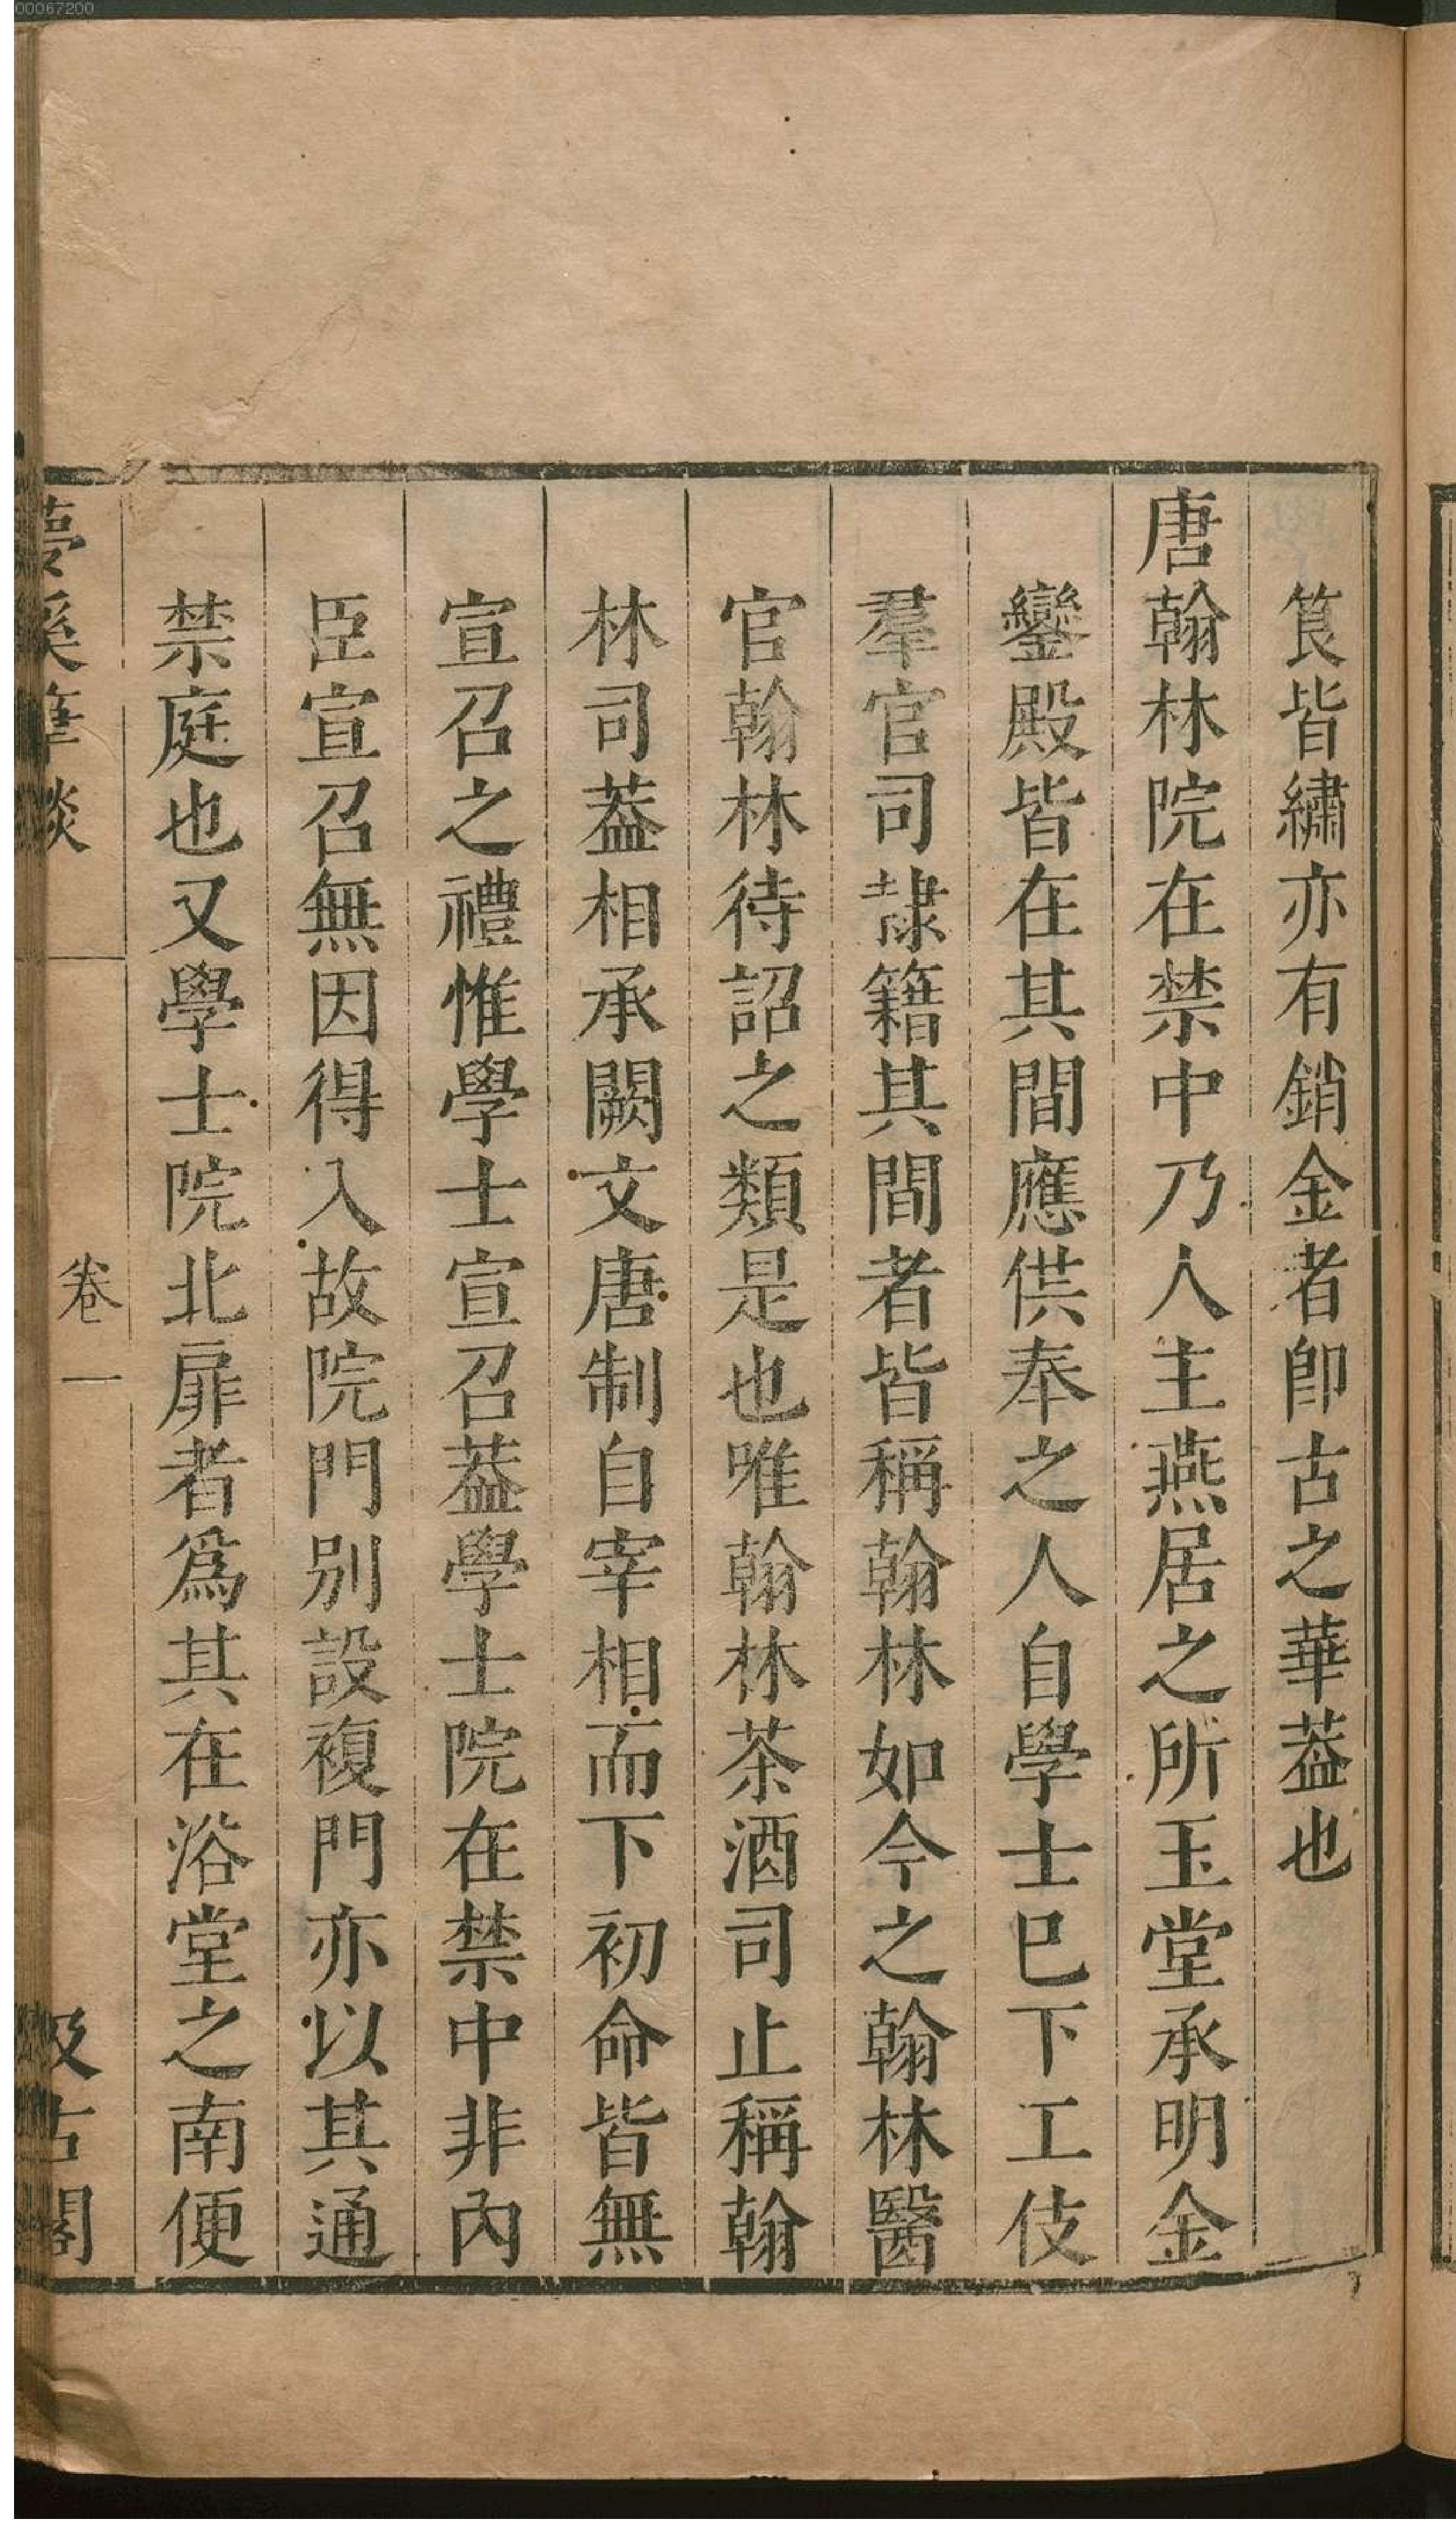 筤皆繡亦有銷金者卽古之華葢也
唐翰林院在禁中乃人主燕居之所玉堂承明金
鑾殿皆在其間應供奉之人自學士已下工伎
羣官司隷籍其間者皆稱翰林如今之翰林醫
官翰林待詔之類是也唯翰林茶酒司止稱翰
林司葢相承闕文唐制自宰相而下初命皆無
宣召之禮惟學士宣召葢學士院在禁中非內
臣宣召無因得入故院門別設複門亦以其通
禁庭也又學士院北扉者爲其在浴堂之南便
夢溪筆談
卷一
汲古閣
00067200